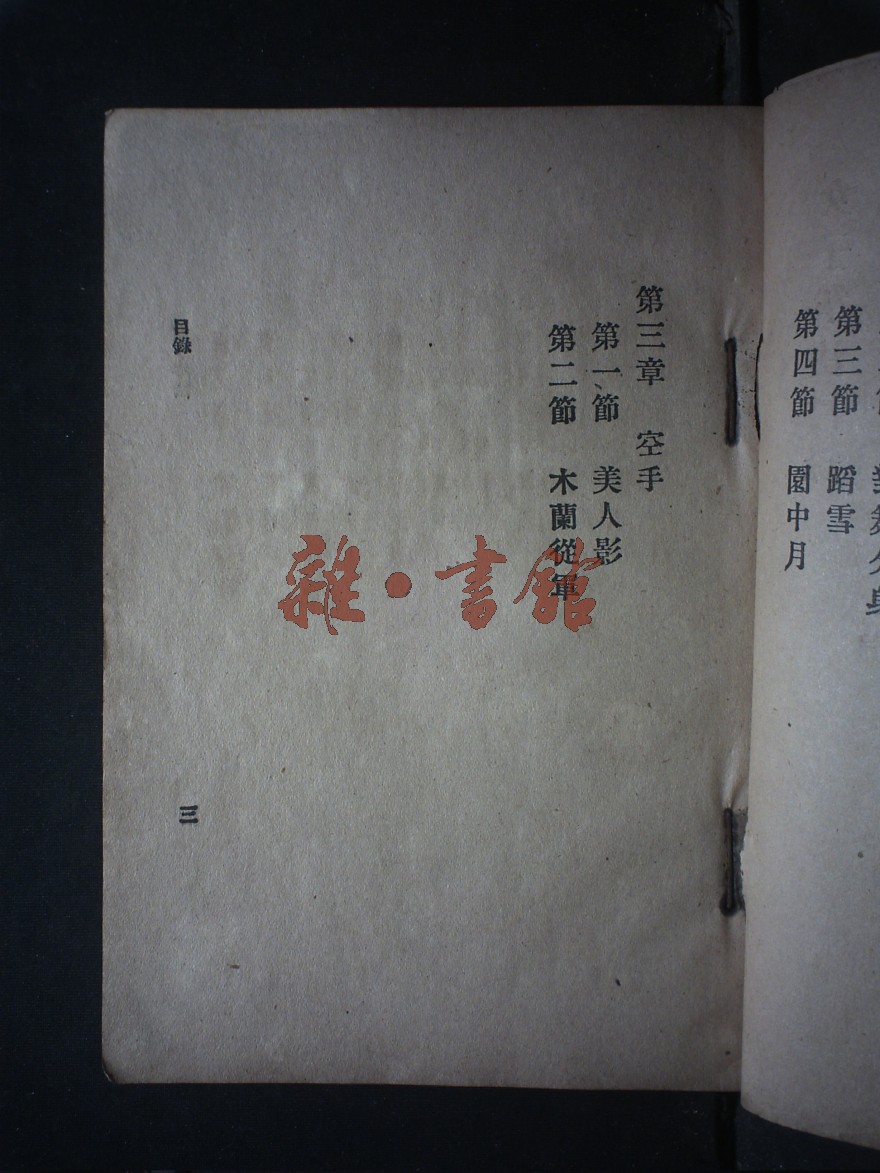 第三節　蹈雪
第四節　園中月
第三章　空手
第一節　美人影
第二節　木蘭從軍
目錄
三
雜·書館